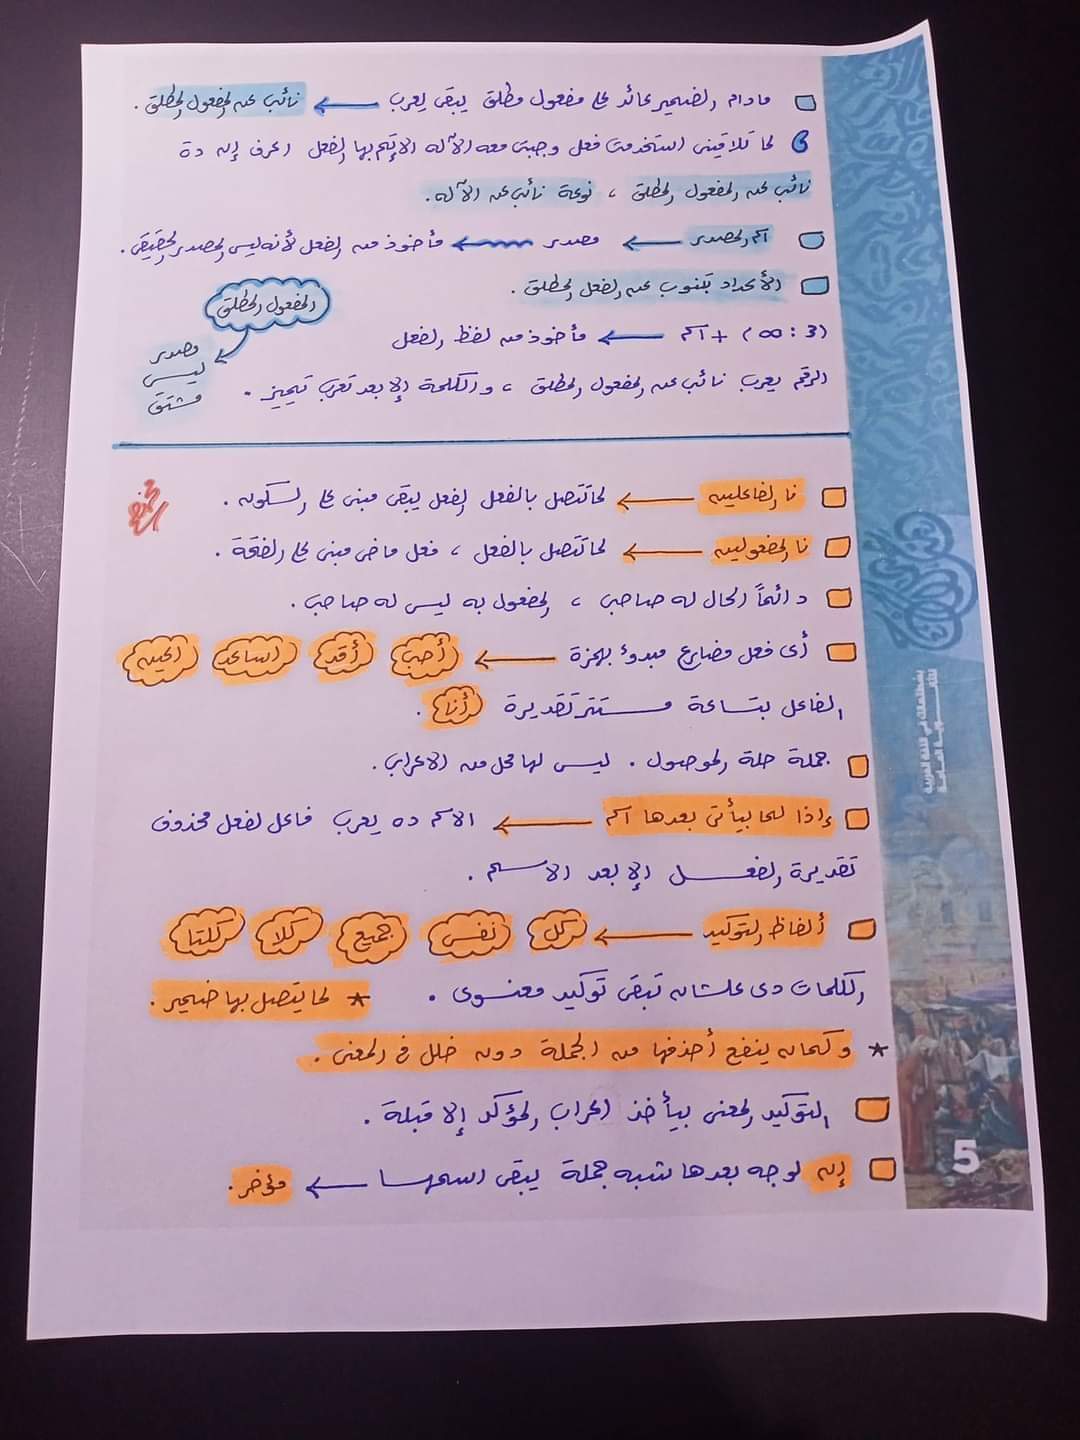 مادام الضمير عائد على مفعول مطلق يبقى يعرب ← نائب عن المفعول المطلق .
لما تلاقيني استخدمت فعل وجبت معه الآله الإ يتم بها الفعل اعرف إن دة
نائب عن المفعول المطلق ، نوعة نائب عن الآله .
اسم المصدر ← مصدر ← مأخوذ من الفعل لأنه ليس المصدر الحقيقى .
الأعداد بتنوب عن الفعل المطلق .
المفعول المطلق
مصدر
ليس
مشتق
(3 : ∞) + اسم ← مأخوذ من لفظ الفعل
الرقم يعرب نائب عن المفعول المطلق ، والكلمة الإ بعد تعرب تمييز .
نا الفاعلين ← لما تتصل بالفعل الفعل يبقى مبنى على السكون .
نا المفعولين ← لما تتصل بالفعل ، فعل ماضى مبنى على الفتحة .
دائماً الحال له صاحب ، المفعول به ليس له صاحب .
أى فعل مضارع مبدوء بهمزة ← أحب أقد اساعد
الفاعل بتاعة مستتر تقديرة أنا .
جملة صلة الموصول . ليس لها محل من الاعراب .
إذا لما بيأتى بعدها اسم ← الاسم ده يعرب فاعل لفعل محذوف
تقديرة الفعل الإ بعد الاسم .
ألفاظ التوكيد ← كل نفس جميع كلا كلتا
الكلمات دى علشان تبقى توكيد معنوى . * لما يتصل بها ضمير .
* وكمان ينفع أحذفها من الجملة دون خلل فى المعنى .
التوكيد المعنى بيأخذ اعراب المؤكد إلا قبلة .
إن لو جه بعدها شبه جملة يبقى اسمها ← مؤخر .
5